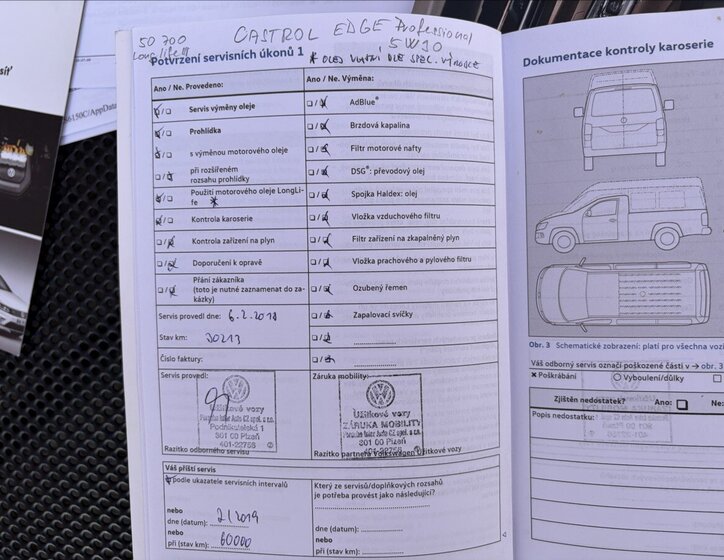 50 700
LongLife III
CASTROL EDGE Professional
5W30
* OLEJ VLASTNÍ DLE SPEC. VÝROBCE
Potvrzení servisních úkonů 1
Ano / Ne. Provedeno:
Servis výměny oleje
Prohlídka
s výměnou motorového oleje
při rozšířeném
rozsahu prohlídky
Použití motorového oleje LongLi-
fe *
Kontrola karoserie
Kontrola zařízení na plyn
Doporučení k opravě
Přání zákazníka
(toto je nutné zaznamenat do za-
kázky)
Servis provedl dne: 6.2.2018
Stav km: 30213
Číslo faktury:
Ano / Ne. Výměna:
AdBlue®
Brzdová kapalina
Filtr motorové nafty
DSG®: převodový olej
Spojka Haldex: olej
Vložka vzduchového filtru
Filtr zařízení na zkapalněný plyn
Vložka prachového a pylového filtru
Ozubený řemen
Zapalovací svíčky
Servis provedl:
Užitkové vozy
Porsche Inter Auto CZ spol. s r.o.
Podnikatelská 1
301 00 Plzeň
401-22758
Razítko odborného servisu
Záruka mobility:
Užitkové vozy
ZÁRUKA MOBILITY
Porsche Inter Auto CZ spol. s r.o.
301 00 Plzeň
401-22758
Razítko partnera Volkswagen Užitkové vozy
Váš příští servis
podle ukazatele servisních intervalů
nebo
dne (datum): 2/2019
nebo
při (stav km): 60000
Který ze servisů/doplňkových rozsahů
je potřeba provést jako následující?
nebo
dne (datum):
nebo
při (stav km):
Dokumentace kontroly karoserie
Obr. 3 Schematické zobrazení: platí pro všechna vozi
Váš odborný servis označí poškozené části v → obr. 3
× Poškrábání
Vyboulení/důlky
Zjištěn nedostatek? Ano: Ne:
Popis nedostatku:
6150C/AppData